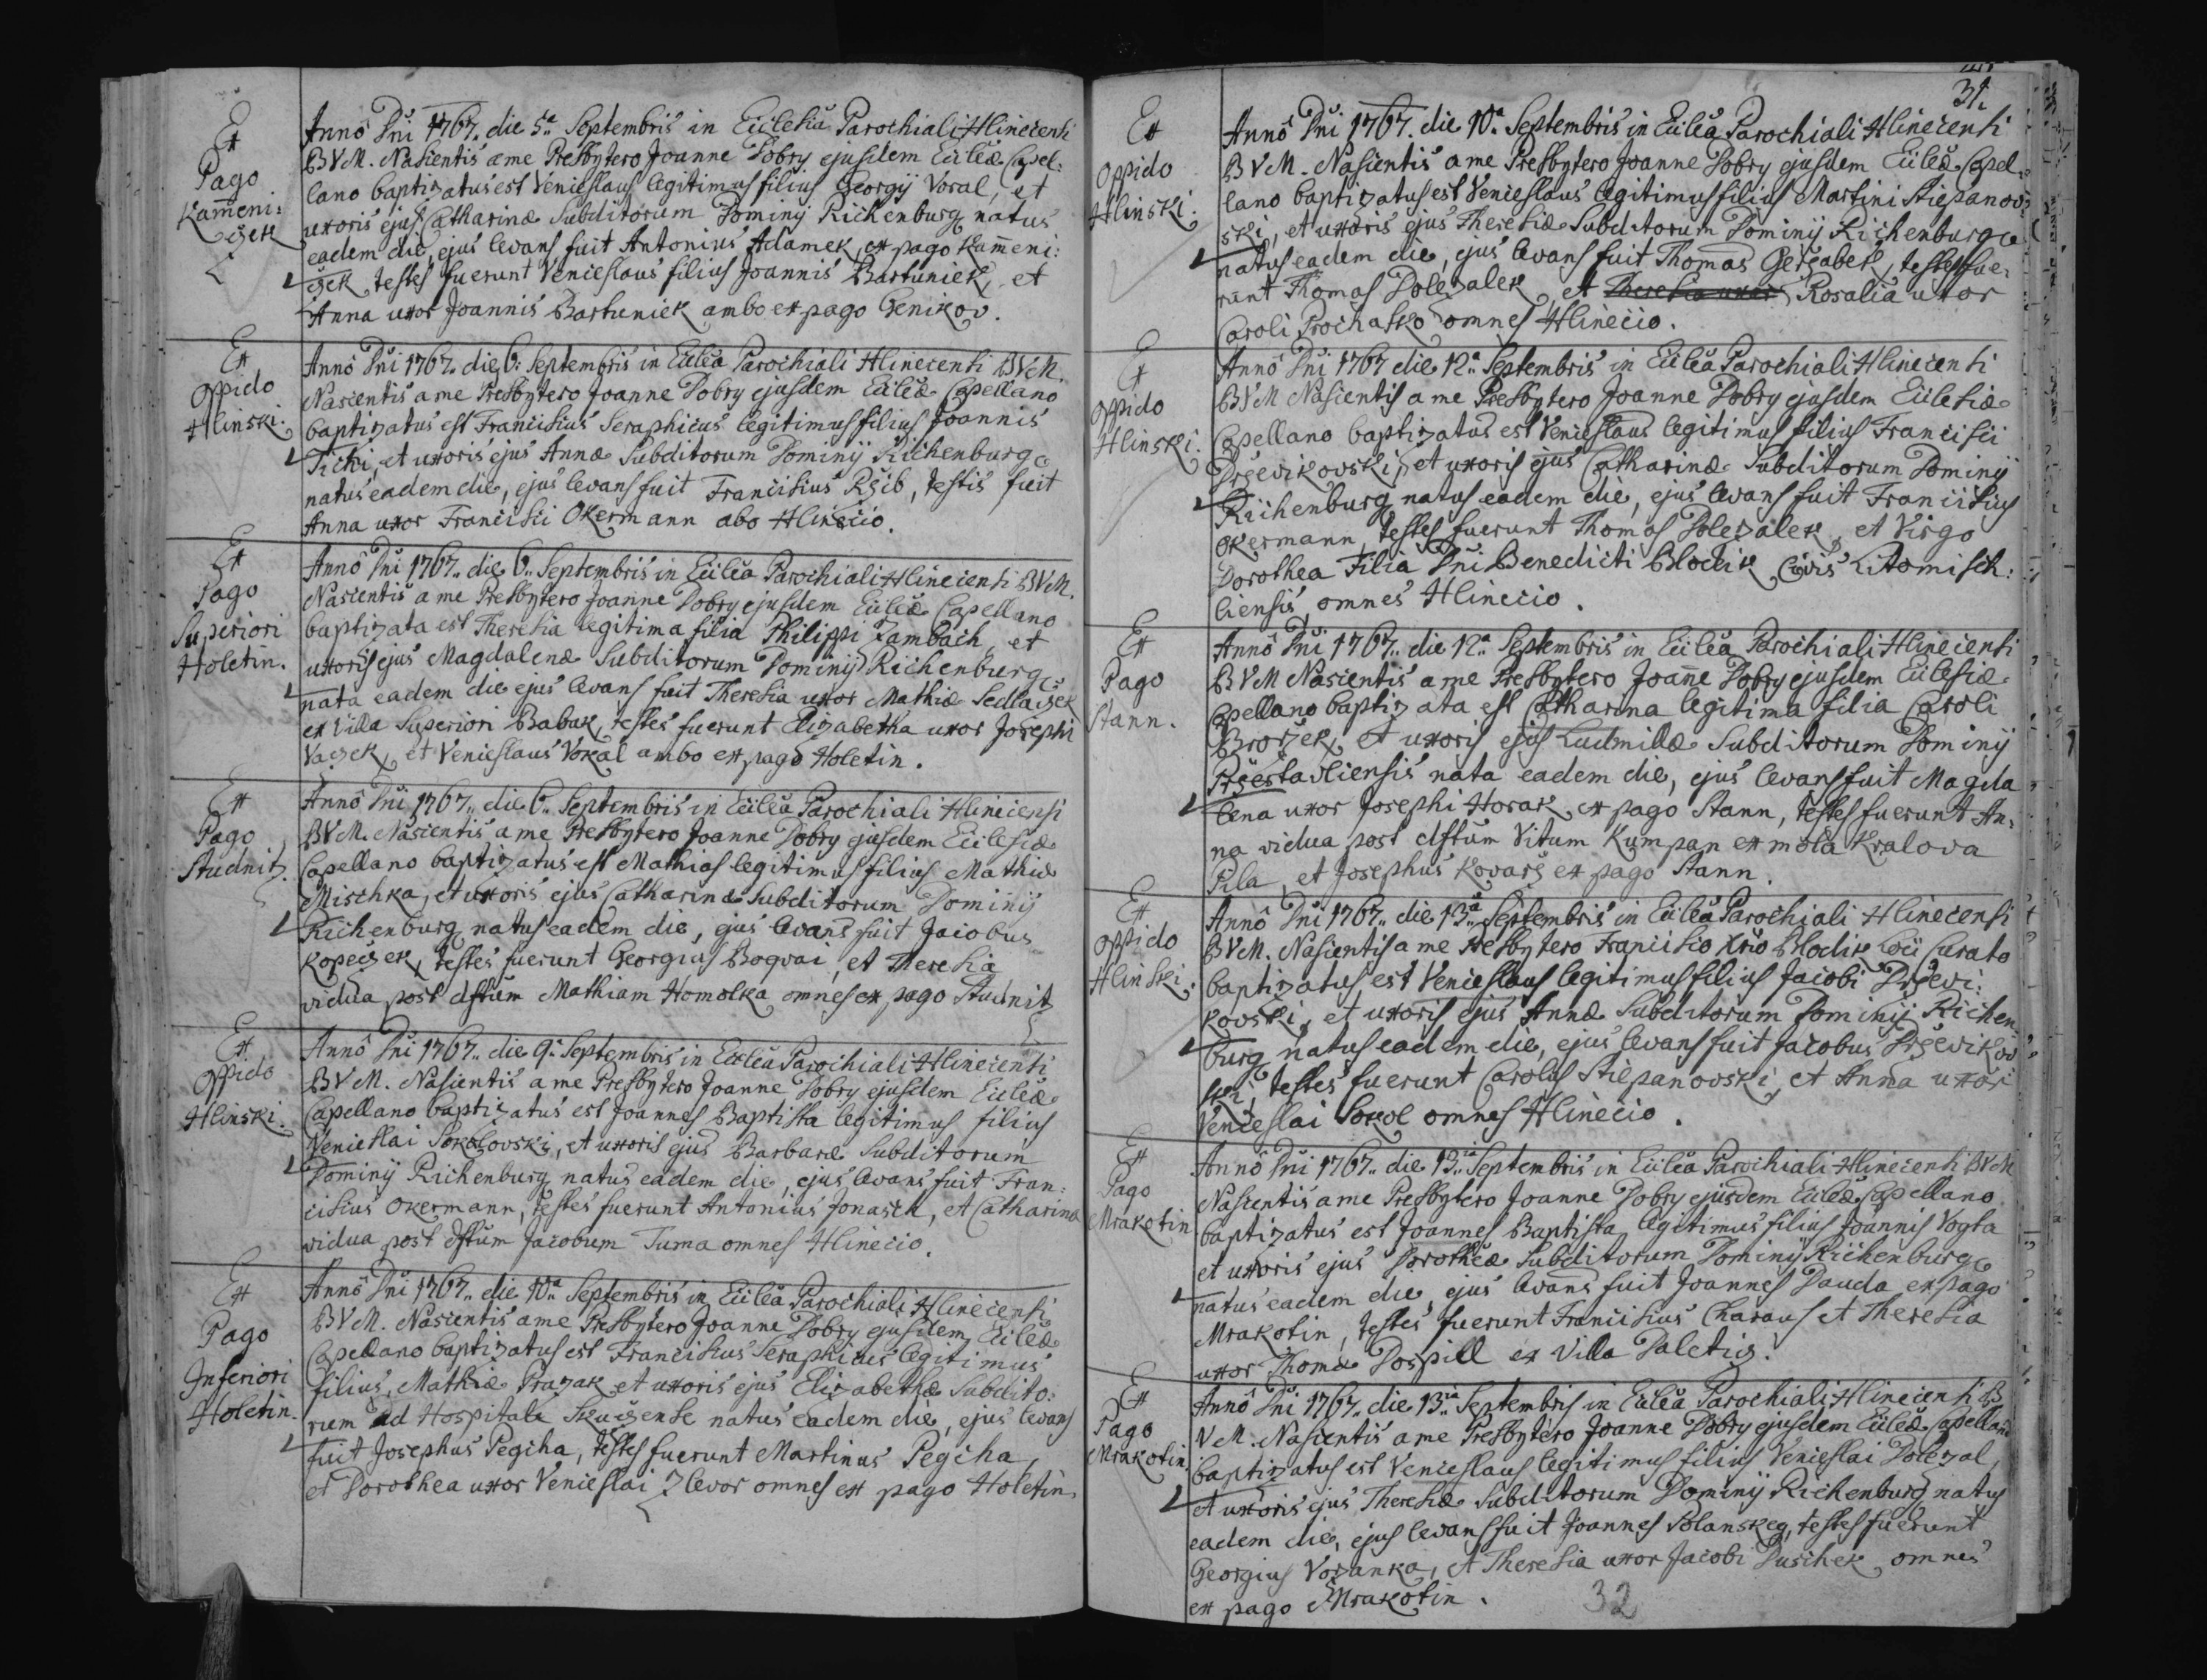 Ex
Pago
Kam̄eni:
czek
Anno Dñi 1767. die 5ª Septembris in Ecclesia Parochiali Hlinecensi
BVM. Nascentis a me Presbytero Joanne Dobry ejusdem Eccleæ Capel:
lano baptizatus est Venceslaus legitimus filius Georgij Voral, et
uxoris ejus Catharinæ Subditorum Dominij Richenburg natus
eadem die, ejus levans fuit Antonius Adamek ex pago Kam̄eni:
czek testes fuerunt Venceslaus filius Joannis Bartuniek, et
Anna uxor Joannis Bartuniek ambo ex pago Genikov.
Ex
Oppido
Hlinski.
Anno Dñi 1767. die 6: Septembris in Ecclea Parochiali Hlinecensi BVM.
Nascentis a me Presbytero Joanne Dobry ejusdem Eccleæ Capellano
baptizatus est Franciscus Seraphicus legitimus filius Joannis
Ticki, et uxoris ejus Annæ Subditorum Dominij Richenburg
natus eadem die, ejus levans fuit Franciscus Rzib, testis fuit
Anna uxor Francisci Okermann abo Hlinecio.
Ex
Pago
Superiori
Holetin.
Anno Dñi 1767.. die 6.. Septembris in Ecclea Parochiali Hlinecensi BVM.
Nascentis a me Presbytero Joanne Dobry ejusdem Eccleæ Capellano
baptizata est Theresia legitima filia Philippi Zambach, et
uxoris ejus Magdalenæ Subditorum Dominij Richenburg
nata eadem die ejus levans fuit Theresia uxor Mathiæ Sedlaczek
ex Villa Superiori Babak, testes fuerunt Elizabetha uxor Josephi
Vaczek, et Venceslaus Vokal ambo ex pago Holetin.
Ex
Pago
Studnitz.
Anno Dñi 1767.. die 6.. Septembris in Ecclea Parochiali Hlinecensi
BVM. Nascentis a me Presbytero Joanne Dobry ejusdem Ecclesiæ
Capellano baptizatus est Mathias legitimus filius Mathiæ
Mischka, et uxoris ejus Catharinæ Subditorum Dominij
Richenburg natus eadem die, ejus levans fuit Jacobus
Kopeczek, testes fuerunt Georgius Bogvai, et Theresia
vidua post dftum Mathiam Homolka omnes ex pago Studnitz
Ex
Oppido
Hlinski.
Anno Dñi 1767.. die 9ª Septembris in Ecclea Parochiali Hlinecensi
BVM. Nascentis a me Presbytero Joanne Dobry ejusdem Eccleæ
Capellano baptizatus est Joannes Baptista legitimus filius
Venceslai Sokolovski, et uxoris ejus Barbaræ Subditorum
Dominij Richenburg natus eadem die, ejus levans fuit Fran:
ciscus Okermann, testes fuerunt Antonius Jonasch, et Catharina
vidua post dftum Jacobum Tuma omnes Hlinecio.
Ex
Pago
Inferiori
Holetin.
Anno Dñi 1767.. die 10ª Septembris in Ecclea Parochiali Hlinecensi
BVM. Nascentis a me Presbytero Joanne Dobry ejusdem Eccleæ
Capellano baptizatus est Franciscus Seraphicus legitimus
filius Mathiæ Prazak et uxoris ejus Elizabethæ Subdito:
rum ad Hospitale Skuczense natus eadem die, ejus levans
fuit Josephus Pegcha, testes fuerunt Martinus Pegcha,
et Dorothea uxor Venceslai Zlevor omnes ex pago Holetin.
31.
Ex
Oppido
Hlinski.
Anno Dñi 1767. die 10ª Septembris in Ecclea Parochiali Hlinecensi
BVM. Nascentis a me Presbytero Joanne Dobry ejusdem Eccleæ Capel:
lano baptizatus est Venceslaus legitimus filius Martini Stiepanov
ski, et uxoris ejus Theresiæ Subditorum Dominij Richenburg
natus eadem die, ejus levans fuit Thomas Gerzabek, testes fue:
runt Thomas Dolezalek, et Theresia uxor Rosalia uxor
Caroli Prochasko omnes Hlinecio.
Ex
Oppido
Hlinski.
Anno Dñi 1767 die 12ª Septembris in Ecclea Parochiali Hlinecensi
BVM Nascentis a me Presbytero Joanne Dobry ejusdem Ecclesiæ
Capellano baptizatus est Venceslaus legitimus filius Francisci
Drzevikovski, et uxoris ejus Catharinæ Subditorum Dominij
Richenburg natus eadem die, ejus levans fuit Franciscus
Okermann, testes fuerunt Thomas Dolezalek, et Virgo
Dorothea Filia Dñi Benedicti Blodik Civis Litomisch:
liensis omnes Hlinecio.
Ex
Pago
Stann.
Anno Dñi 1767.. die 12ª Septembris in Ecclea Parochiali Hlinecensi
BVM Nascentis a me Presbytero Joan̄e Dobry ejusdem Ecclesiæ
Capellano baptizata est Catharina legitima filia Caroli
Brozek, et uxoris ejus Ludmilæ Subditorum Dominij
Rzestavliensis nata eadem die, ejus levans fuit Magda
lena uxor Josephi Horak ex pago Stann, testes fuerunt An:
na vidua post dftum Vitum Kumpan ex mola Kralova
Pila, et Josephus Kovarz ex pago Stann.
Ex
Oppido
Hlinski.
Anno Dñi 1767.. die 13ª Septembris in Ecclea Parochiali Hlinecensi
BVM. Nascentis a me Presbytero Francisco Xrio Blodik Loci Curato
baptizatus est Venceslaus legitimus filius Jacobi Drzevi:
kovski, et uxoris ejus Annæ Subditorum Dominij Richen
burg natus eadem die, ejus levans fuit Jacobus Drzevikov
ski, testes fuerunt Carolus Stiepanovski, et Anna uxor
Venceslai Sokol omnes Hlinecio.
Ex
Pago
Mrakotin
Anno Dñi 1767.. die 13ia Septembris in Ecclea Parochiali Hlinecensi BVM
Nascentis a me Presbytero Joanne Dobry ejusdem Eccleæ Capellano
baptizatus est Joannes Baptista legitimus filius Joannis Vogta
et uxoris ejus Dorotheæ Subditorum Dominij Richenburg
natus eadem die, ejus levans fuit Joannes Dauda ex pago
Mrakotin, testes fuerunt Franciscus Charaus et Theresia
uxor Thomæ Pospill ex Villa Daletiz.
Ex
Pago
Mrakotin
Anno Dñi 1767.. die 13ia Septembris in Ecclea Parochiali Hlinecensi B
VM. Nascentis a me Presbytero Joanne Dobry ejusdem Eccleæ Capellano
baptizatus est Venceslaus legitimus filius Venceslai Dolezal,
et uxoris ejus Theresiæ Subditorum Dominij Richenburg natus
eadem die, ejus levans fuit Joannes Polanskeg, testes fuerunt
Georgius Vozanka, et Theresia uxor Jacobi Duschek omnes
ex pago Mrakotin.
32